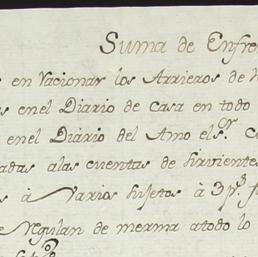 Suma de Enfre
s en Vacionar los Arrieros de
s enel Diario de casa en todo
enel Diario del Amo el sor. C
adas alas cuentas de sirvientes
s à Varios sujetos à 3 ps
e Regulan de merma atodo lo